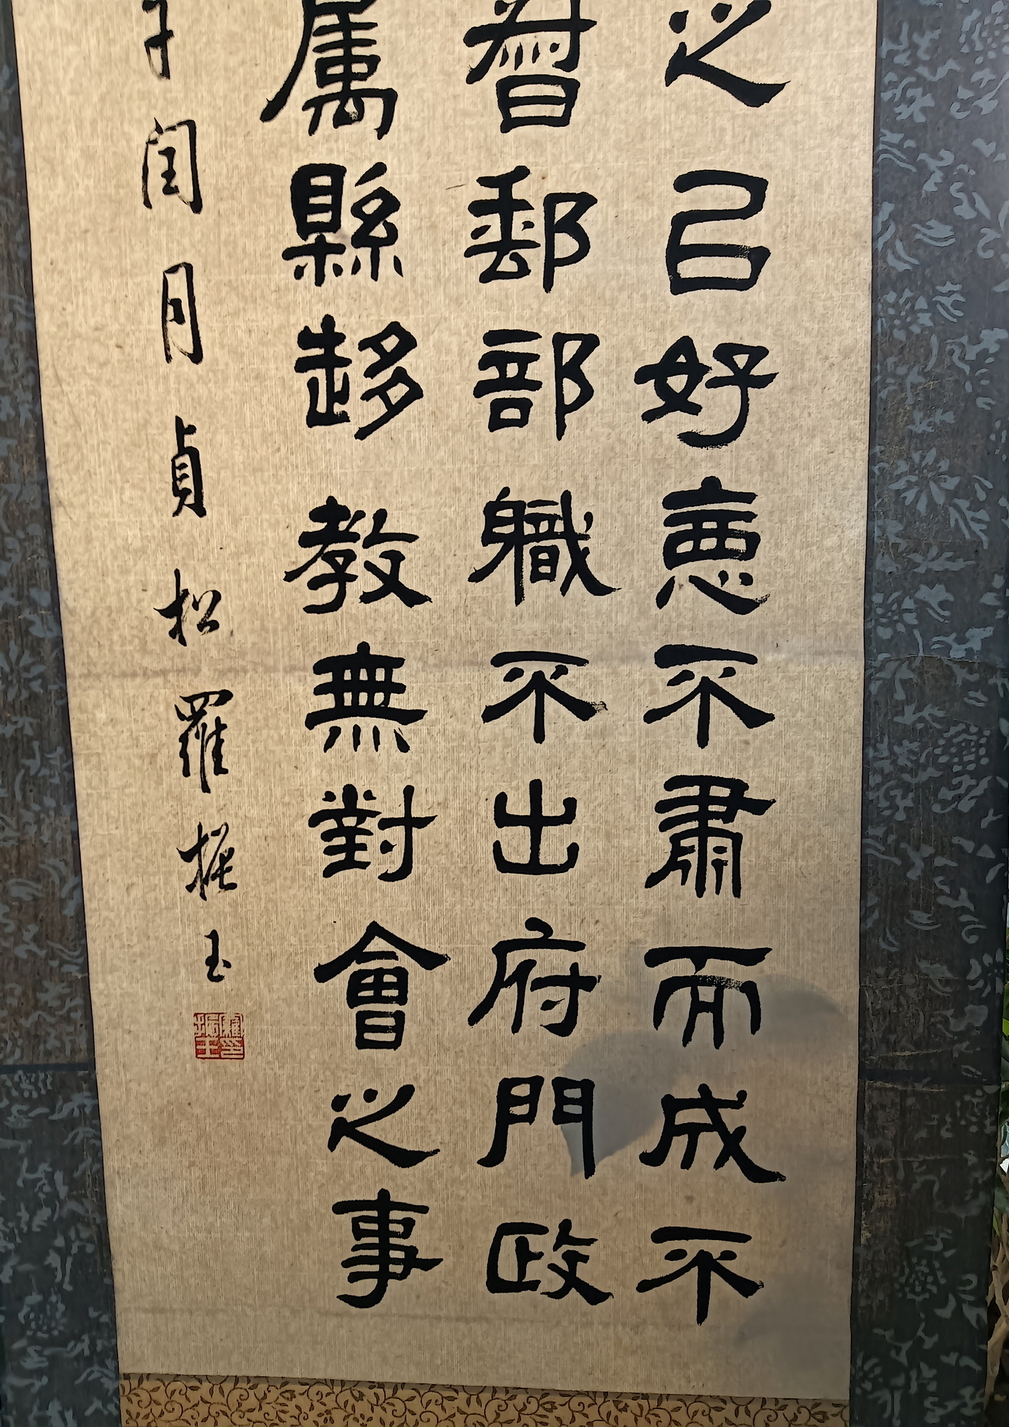 之㠯好惡不肅而成不
督郵部職不出府門政
屬縣趍教無對會之事
閏月貞松羅振玉
羅振玉印